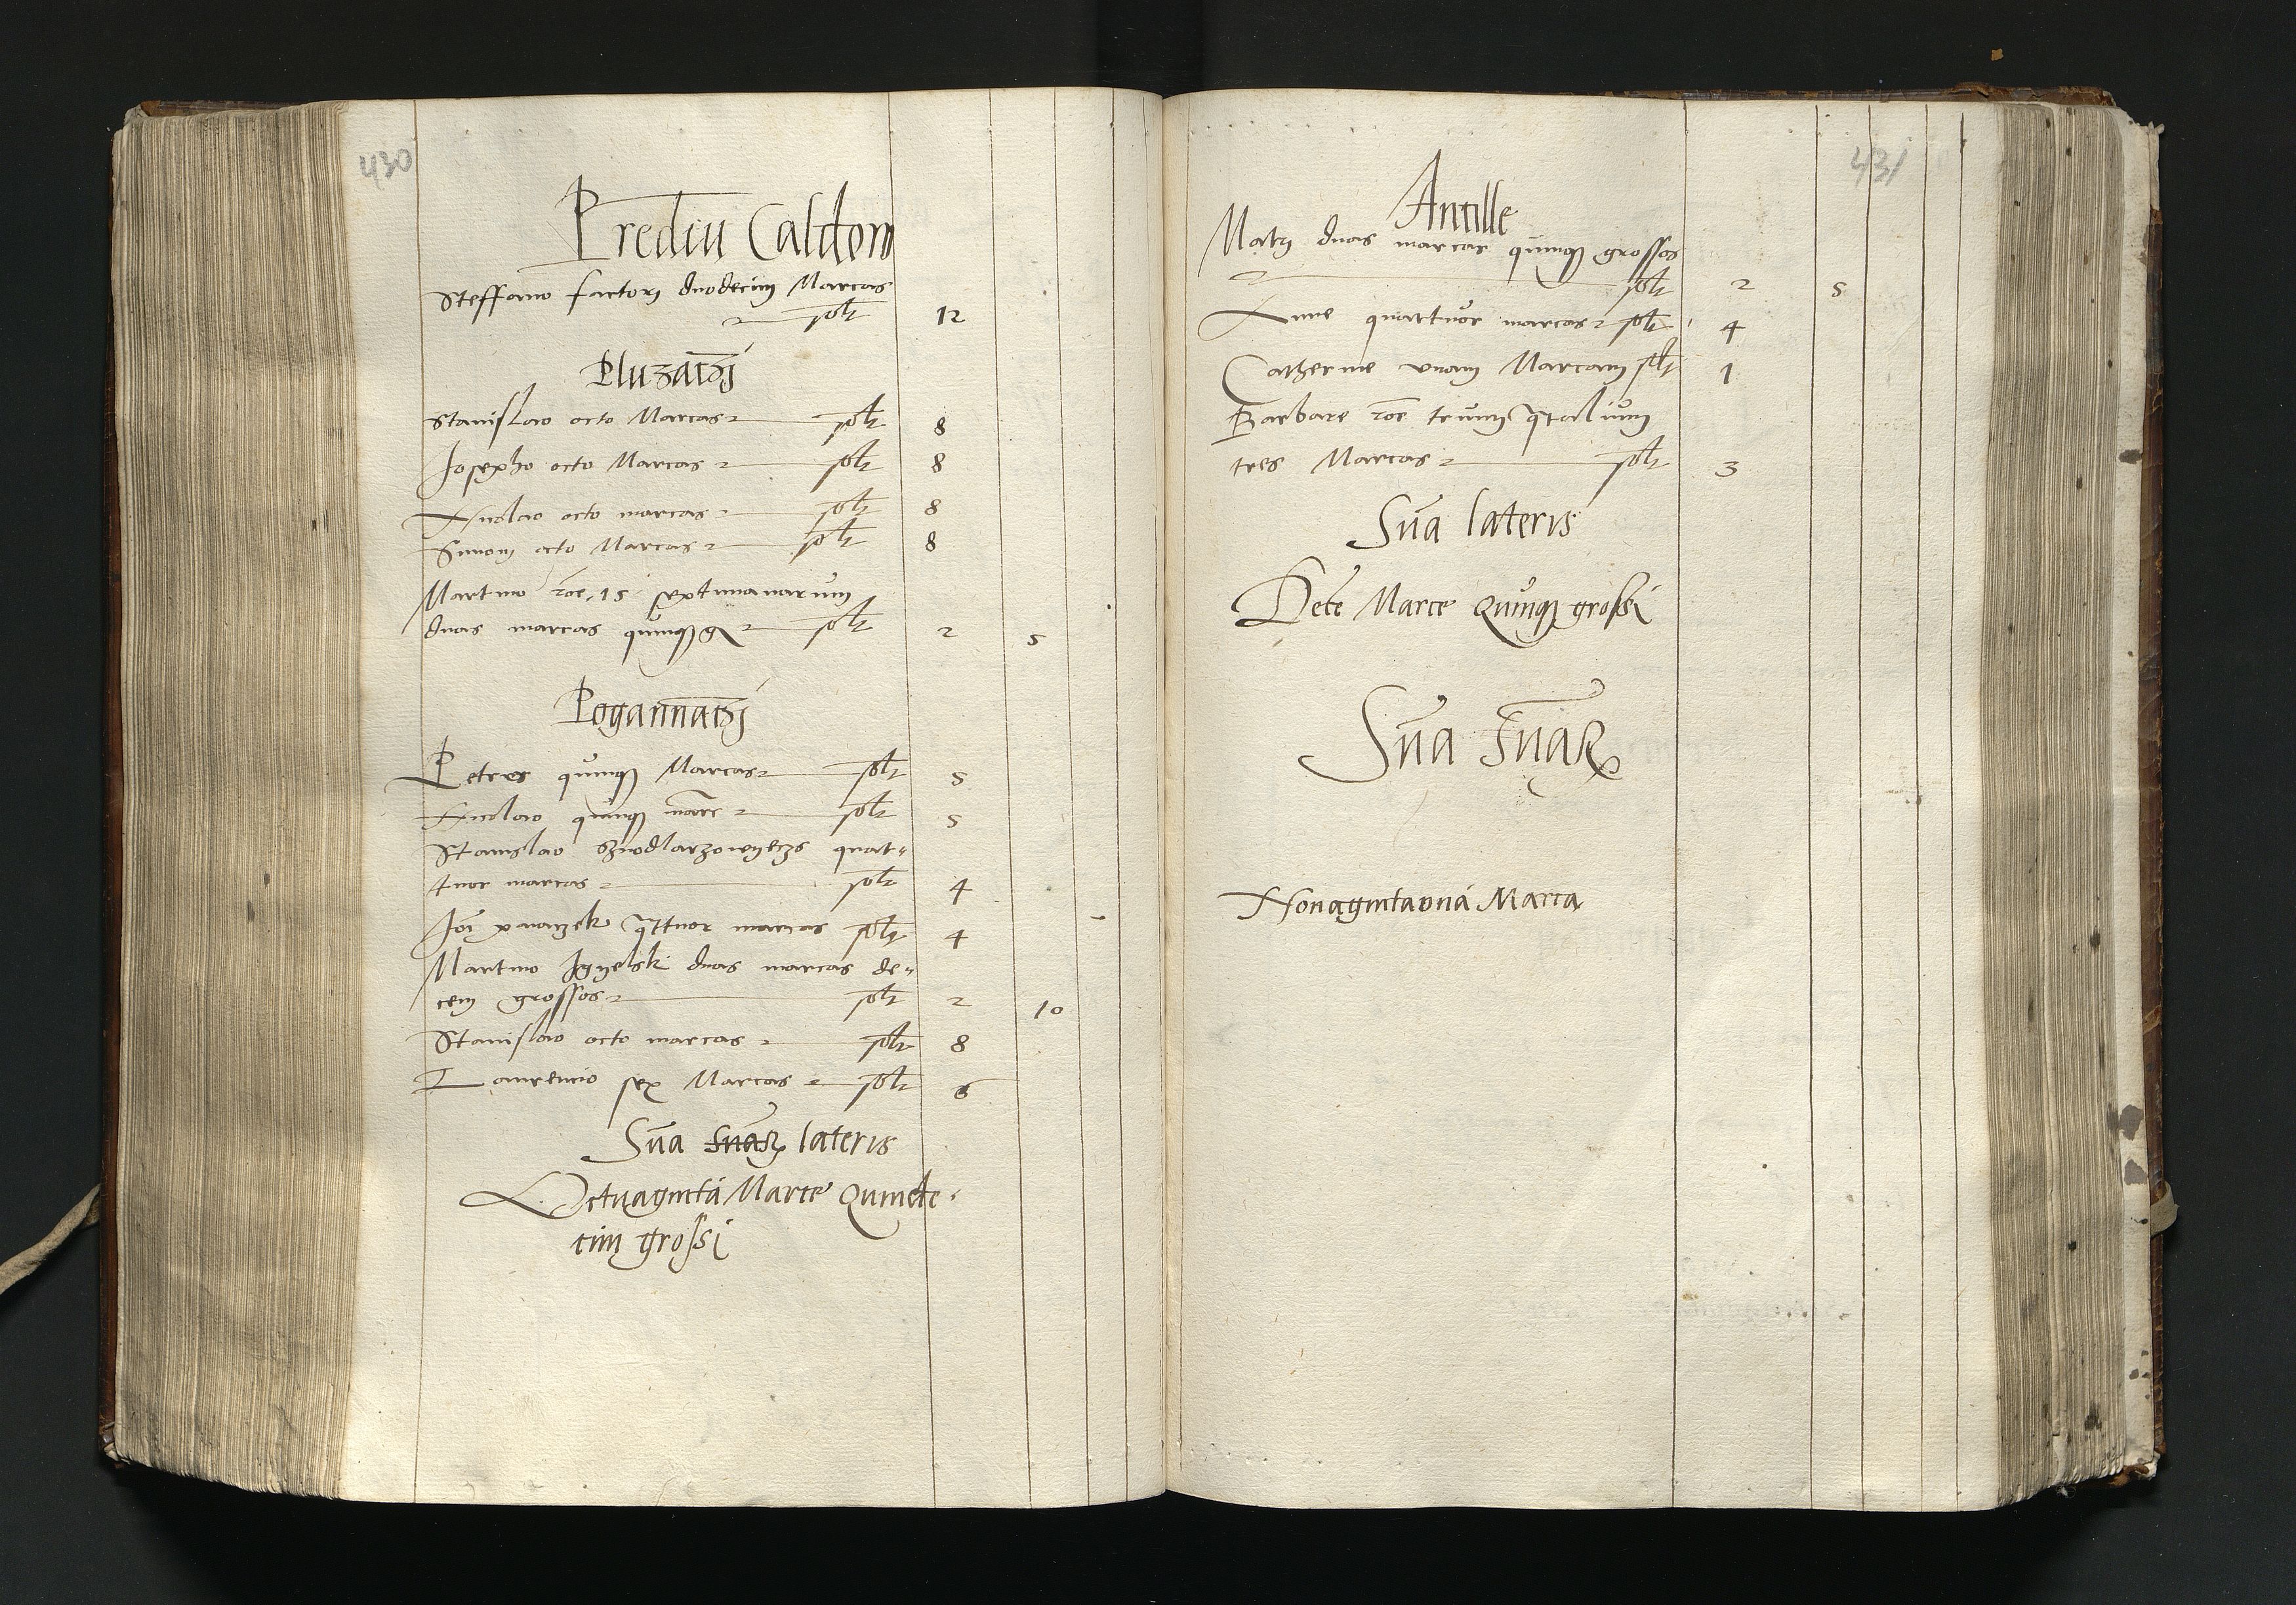 430
Prediu Caldom
Steffano factorj duodecim Marcas
solt 12
Pluzaczj
Stanislao octo Marcas solt 8
Josepho octo Marcas solt 8
Nicolao octo marcas solt 8
Simonj octo Marcas solt 8
Martino roe 15 septimanarum
duas marcas quinq gr solt 2 5
Pogannaczj
Petro quinq Marcas solt 5
Nicolao quinq marc solt 5
Stanislao quat=
tuor marcas solt 4
Joi qttuor marcas solt 4
Martino Jgyelsk duas marcas de=
cem grossos solt 2 10
Stanislao octo marcas solt 8
Laurencio sex Marcas solt 6
Sua suar lateris
Octuaginta Marce Quinde
cim grossi
431
Ancille
Matrj duas marcas quinq grossos
solt 2 5
Anne quattuor marcas solt 4
Catherine vnam Marcam solt 1
Barbare roe trium qrtalium
tres Marcas solt 3
Sua lateris
Dece Marce Quinq grossi
Sua Suar
Nonagintaunā Marca